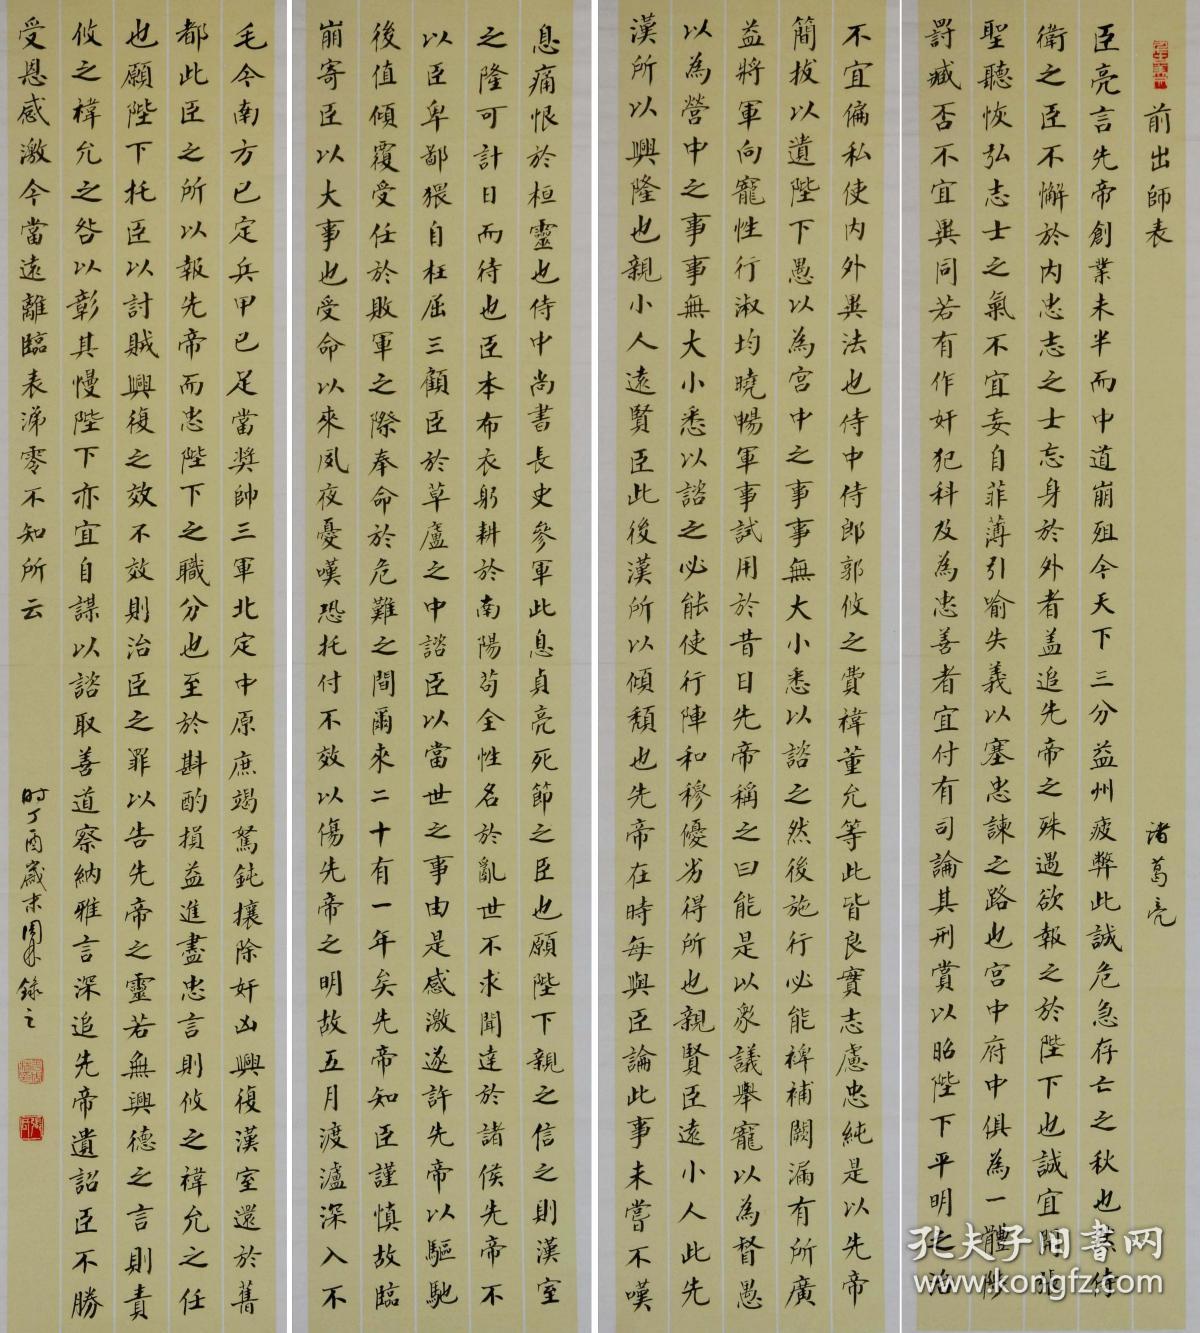 前出師表 諸葛亮
臣亮言先帝創業未半而中道崩殂今天下三分益州疲弊此誠危急存亡之秋也然侍
衛之臣不懈於內忠志之士忘身於外者蓋追先帝之殊遇欲報之於陛下也誠宜開張
聖聽恢弘志士之氣不宜妄自菲薄引喻失義以塞忠諫之路也宮中府中俱為一體陟
罰臧否不宜異同若有作奸犯科及為忠善者宜付有司論其刑賞以昭陛下平明之治
不宜偏私使內外異法也侍中侍郎郭攸之費禕董允等此皆良實志慮忠純是以先帝
簡拔以遺陛下愚以為宮中之事事無大小悉以諮之然後施行必能裨補闕漏有所廣
益將軍向寵性行淑均曉暢軍事試用於昔日先帝稱之曰能是以眾議舉寵以為督愚
以為營中之事事無大小悉以諮之必能使行陣和穆優劣得所也親賢臣遠小人此先
漢所以興隆也親小人遠賢臣此後漢所以傾頹也先帝在時每與臣論此事未嘗不嘆
息痛恨於桓靈也侍中尚書長史參軍此息貞亮死節之臣也願陛下親之信之則漢室
之隆可計日而待也臣本布衣躬耕於南陽苟全性名於亂世不求聞達於諸侯先帝不
以臣卑鄙猥自枉屈三顧臣於草廬之中諮臣以當世之事由是感激遂許先帝以驅馳
後值傾覆受任於敗軍之際奉命於危難之間爾來二十有一年矣先帝知臣謹慎故臨
崩寄臣以大事也受命以來夙夜憂嘆恐托付不效以傷先帝之明故五月渡瀘深入不
毛今南方已定兵甲已足當奨帥三軍北定中原庶竭駑鈍攘除奸凶興復漢室還於舊
都此臣之所以報先帝而忠陛下之職分也至於斟酌損益進盡忠言則攸之禕允之任
也願陛下托臣以討賊興復之效不效則治臣之罪以告先帝之靈若無興德之言則責
攸之禕允之咎以彰其慢陛下亦宜自謀以諮取善道察納雅言深追先帝遺詔臣不勝
受恩感激今當遠離臨表涕零不知所云
时丁酉歲末周錄之
孔夫子旧书网
www.kongfz.com